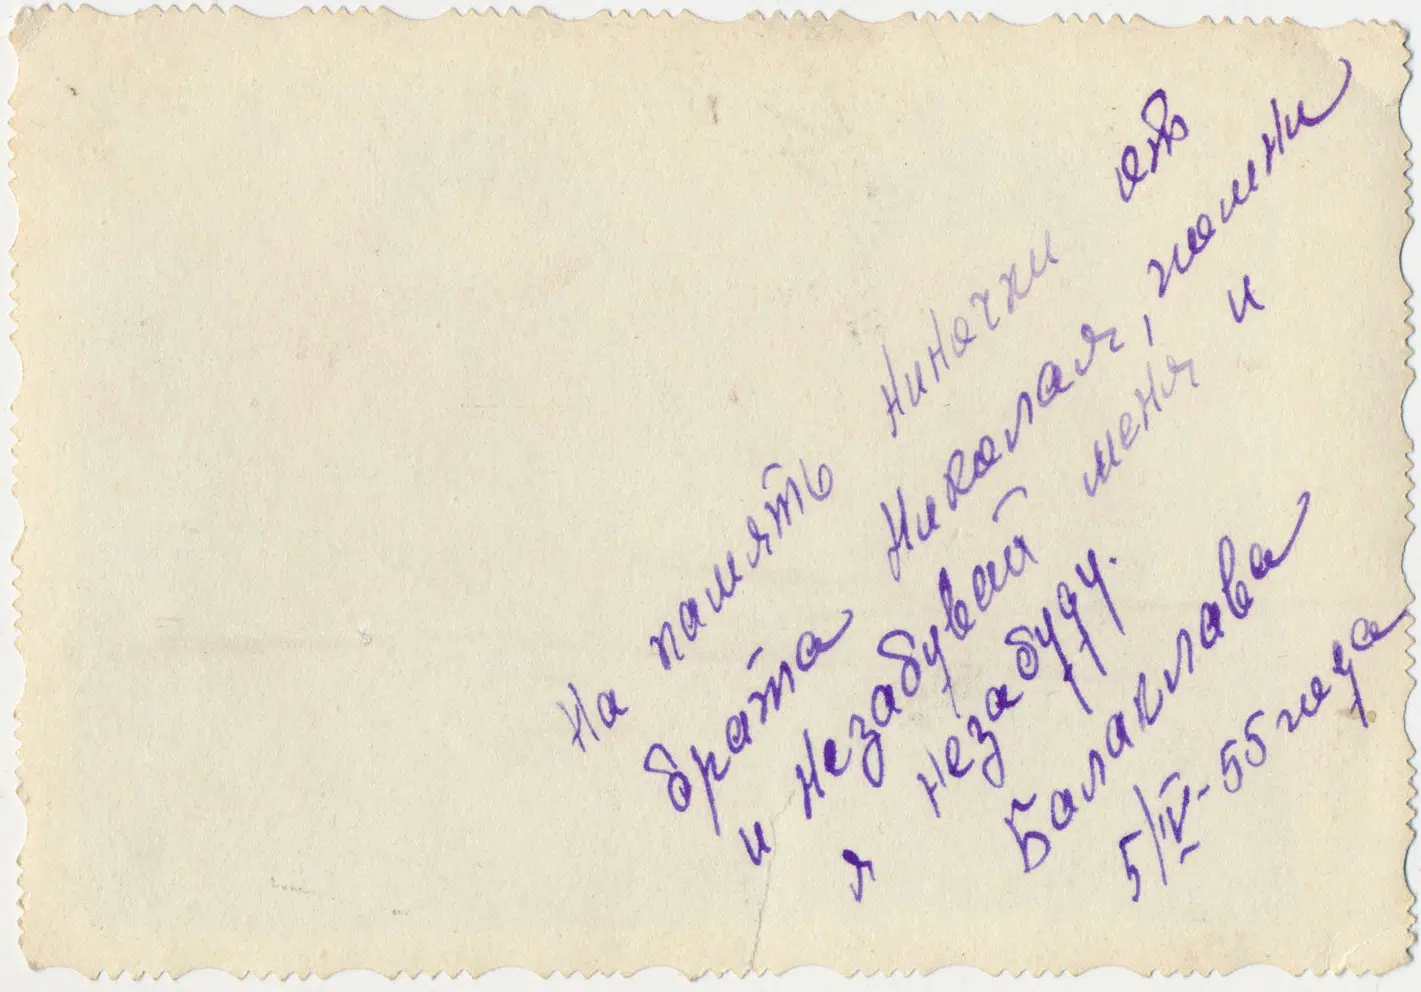 На память Ниночки отъ
брата Николая, помни
и незабувай меня и
я незабуду.
Балаклава
5/IV-55 года